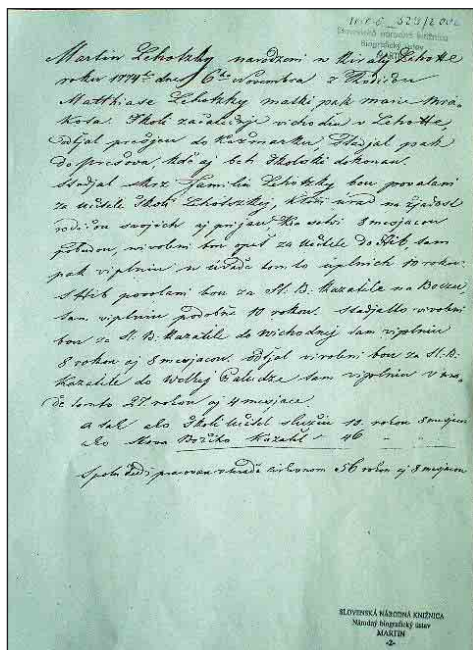 SLOVENSKÁ NÁRODNÁ KNIŽNICA
Biografický ústav
Martin Lehotzky narodzeni w Kiraly Lehotte
roku 1774 dne 6 Novembra z Rodičou
Matthiasa Lehotzky matki pak Marie
kota. Školi začal w Lehotte,
odtjal do Kežmarku, Stadjal pak
do Prešova, kde aj beh Školski dokonau.
Stadjal skrz Familiu Lehotzky bou povolani
za Učitele Školi Lehotszky, ktori úrad na Žjadost
rodičou swojich aj prijau. 8 mesjacou
pobudou, zwoleni bou opet za Učitele do Hib tam
pak viplniu w úrade tomto úplnich 10 rokou.
Z Hib povolani bou za Sl. B. Kazatele na Bocu
tam viplniu podobne 10 rokou. Stadjalto
bou za Sl. B. Kazatele do Wichodnej tam viplniu
8 rokou aj 8 mesjacou. Odtjal bou za Sl. B.
Kazatele do Welkej Paludze tam viplniu v úra-
de tomto 27 rokou aj 4 mesjace.
A tak ako Školi Učitel slúžiu 10 rokou 8 mesjacou
ako Slova Božiho Kazatel 46 " "
Spolu pracovau v úrade cirkevnom 56 rokou aj 8 mesjacou
SLOVENSKÁ NÁRODNÁ KNIŽNICA
Národný biografický ústav
MARTIN
-2-